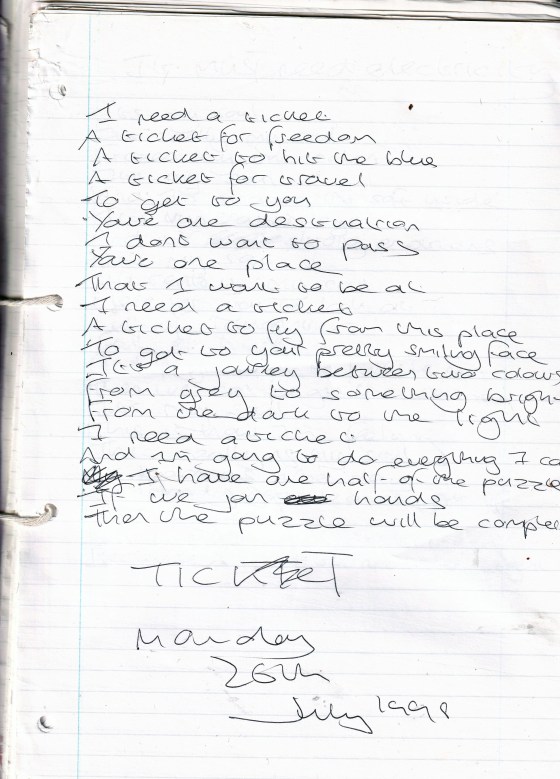 I need a ticket
A ticket for freedom
A ticket to hit the blue
A ticket for travel
To get to you
Your the destination
I dont want to pass
Your the place
That I want to be at
I need a ticket
A ticket to fly from this place
To get to your pretty smiling face
It's a journey between two colours
From grey to something bright
From the dark to the light
I need a ticket
And Im going to do everything I ca
I have one half of the puzzle
If we join hands
Then the puzzle will be comple
TICKET
Monday
26th
July 1998